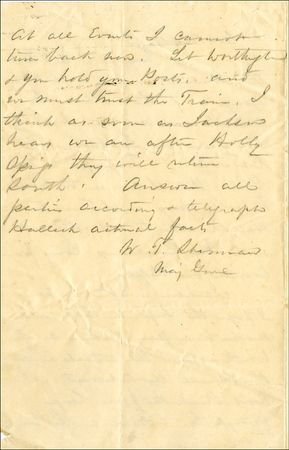 At all Events I cannot
turn back now. Let Worthington
& you hold your Posts, and
we must trust the Train. I
think as soon as Jackson
hears we are after Holly
Spgs they will return
South. Answer all
parties accordingly & telegraph
Halleck actual facts
W. T. Sherman
Maj Genl